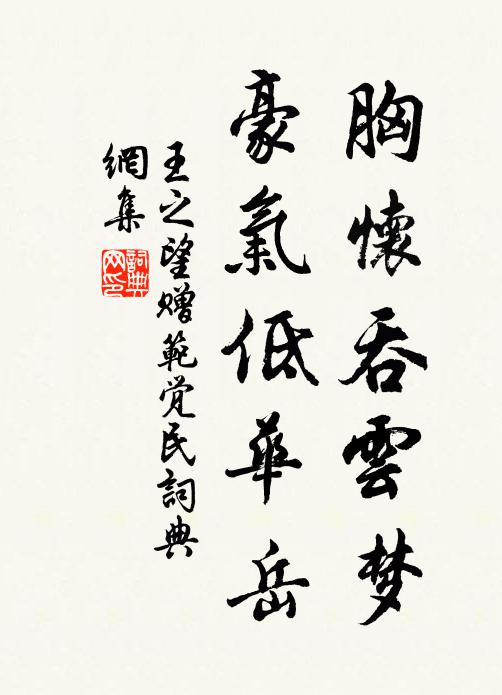 胸懷吞雲梦
豪氣低華岳
王之望赠範觉民詞典
網集
詞典网印